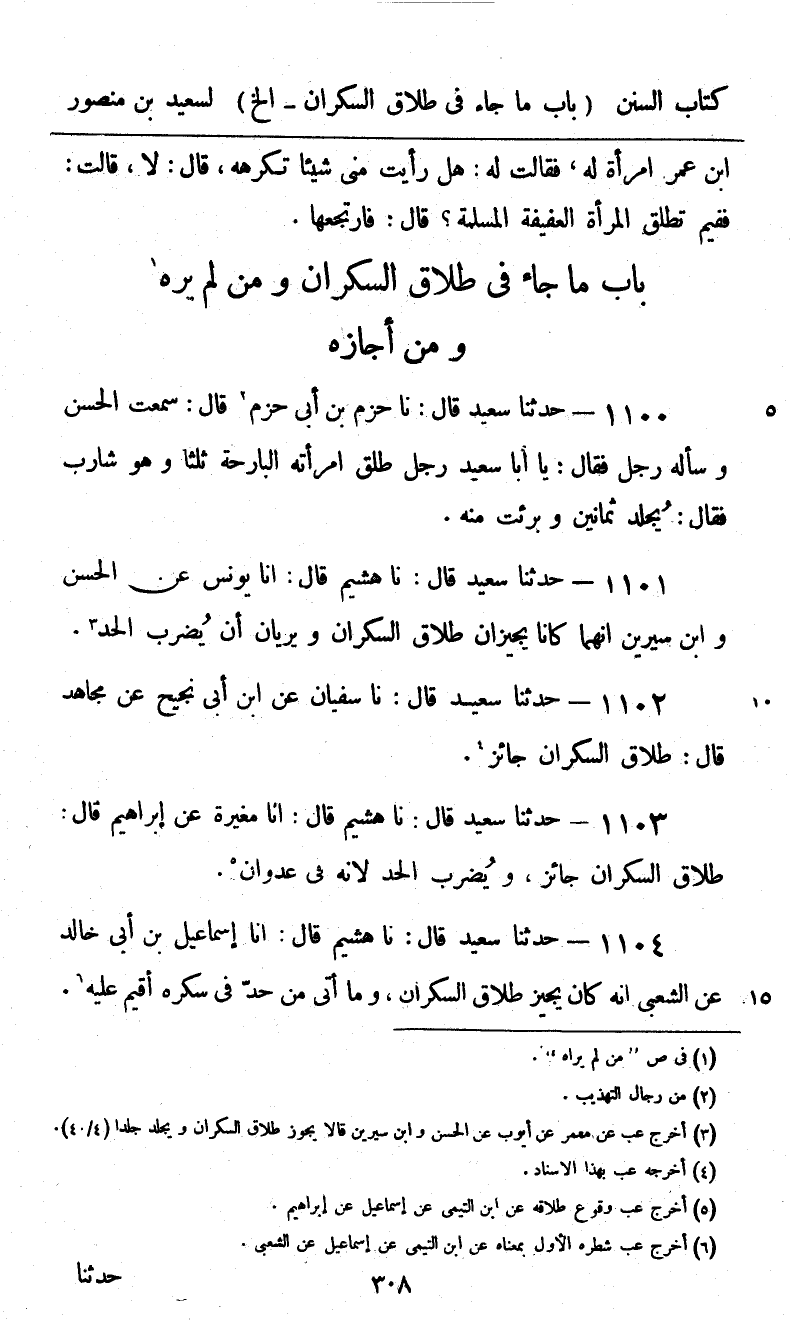 كتاب السنن ( باب ما جاء فى طلاق السكران ـ الخ ) لسعيد بن منصور
ابن عمر امرأة له ، فقالت له : هل رأيت منى شيئا تكرهه ، قال : لا ، قالت :
ففيم تطلق المرأة العفيفة المسلمة ؟ قال : فارتجعها .
باب ما جاء فى طلاق السكران و من لم يره١
و من أجازه
٥ ١١٠٠ – حدثنا سعيد قال : نا حزم بن أبى حزم٢ قال : سمعت الحسن
و سأله رجل فقال : يا أبا سعيد رجل طلق امرأته البارحة ثلثا و هو شارب
فقال : يُجلد ثمانين و برئت منه .
١١٠١ – حدثنا سعيد قال : نا هشيم قال : انا يونس عن الحسن
و ابن سيرين انهما كانا يجيزان طلاق السكران و يريان أن يُضرب الحد٣ .
١٠ ١١٠٢ – حدثنا سعيد قال : نا سفيان عن ابن أبى نجيح عن مجاهد
قال : طلاق السكران جائز٤ .
١١٠٣ – حدثنا سعيد قال : نا هشيم قال : انا مغيرة عن إبراهيم قال :
طلاق السكران جائز ، و يُضرب الحد لانه فى عدوان٥ .
١١٠٤ – حدثنا سعيد قال : نا هشيم قال : انا إسماعيل بن أبى خالد
١٥ عن الشعبى انه كان يجيز طلاق السكران ، و ما أتى من حدّ فى سكره أقيم عليه٦ .
(١) فى ص ” من لم يراه “ .
(٢) من رجال التهذيب .
(٣) أخرج عب عن معمر عن أيوب عن الحسن و ابن سيرين قالا يجوز طلاق السكران و يجلد جلدا (٤٠/٤).
(٤) أخرجه عب بهذا الاسناد .
(٥) أخرج عب وقوع طلاقه عن ابن التيمى عن إسماعيل عن إبراهيم .
(٦) أخرج عب شطره الأول بمعناه عن ابن التيمى عن إسماعيل عن الشعبى .
٣٠٨ حدثنا